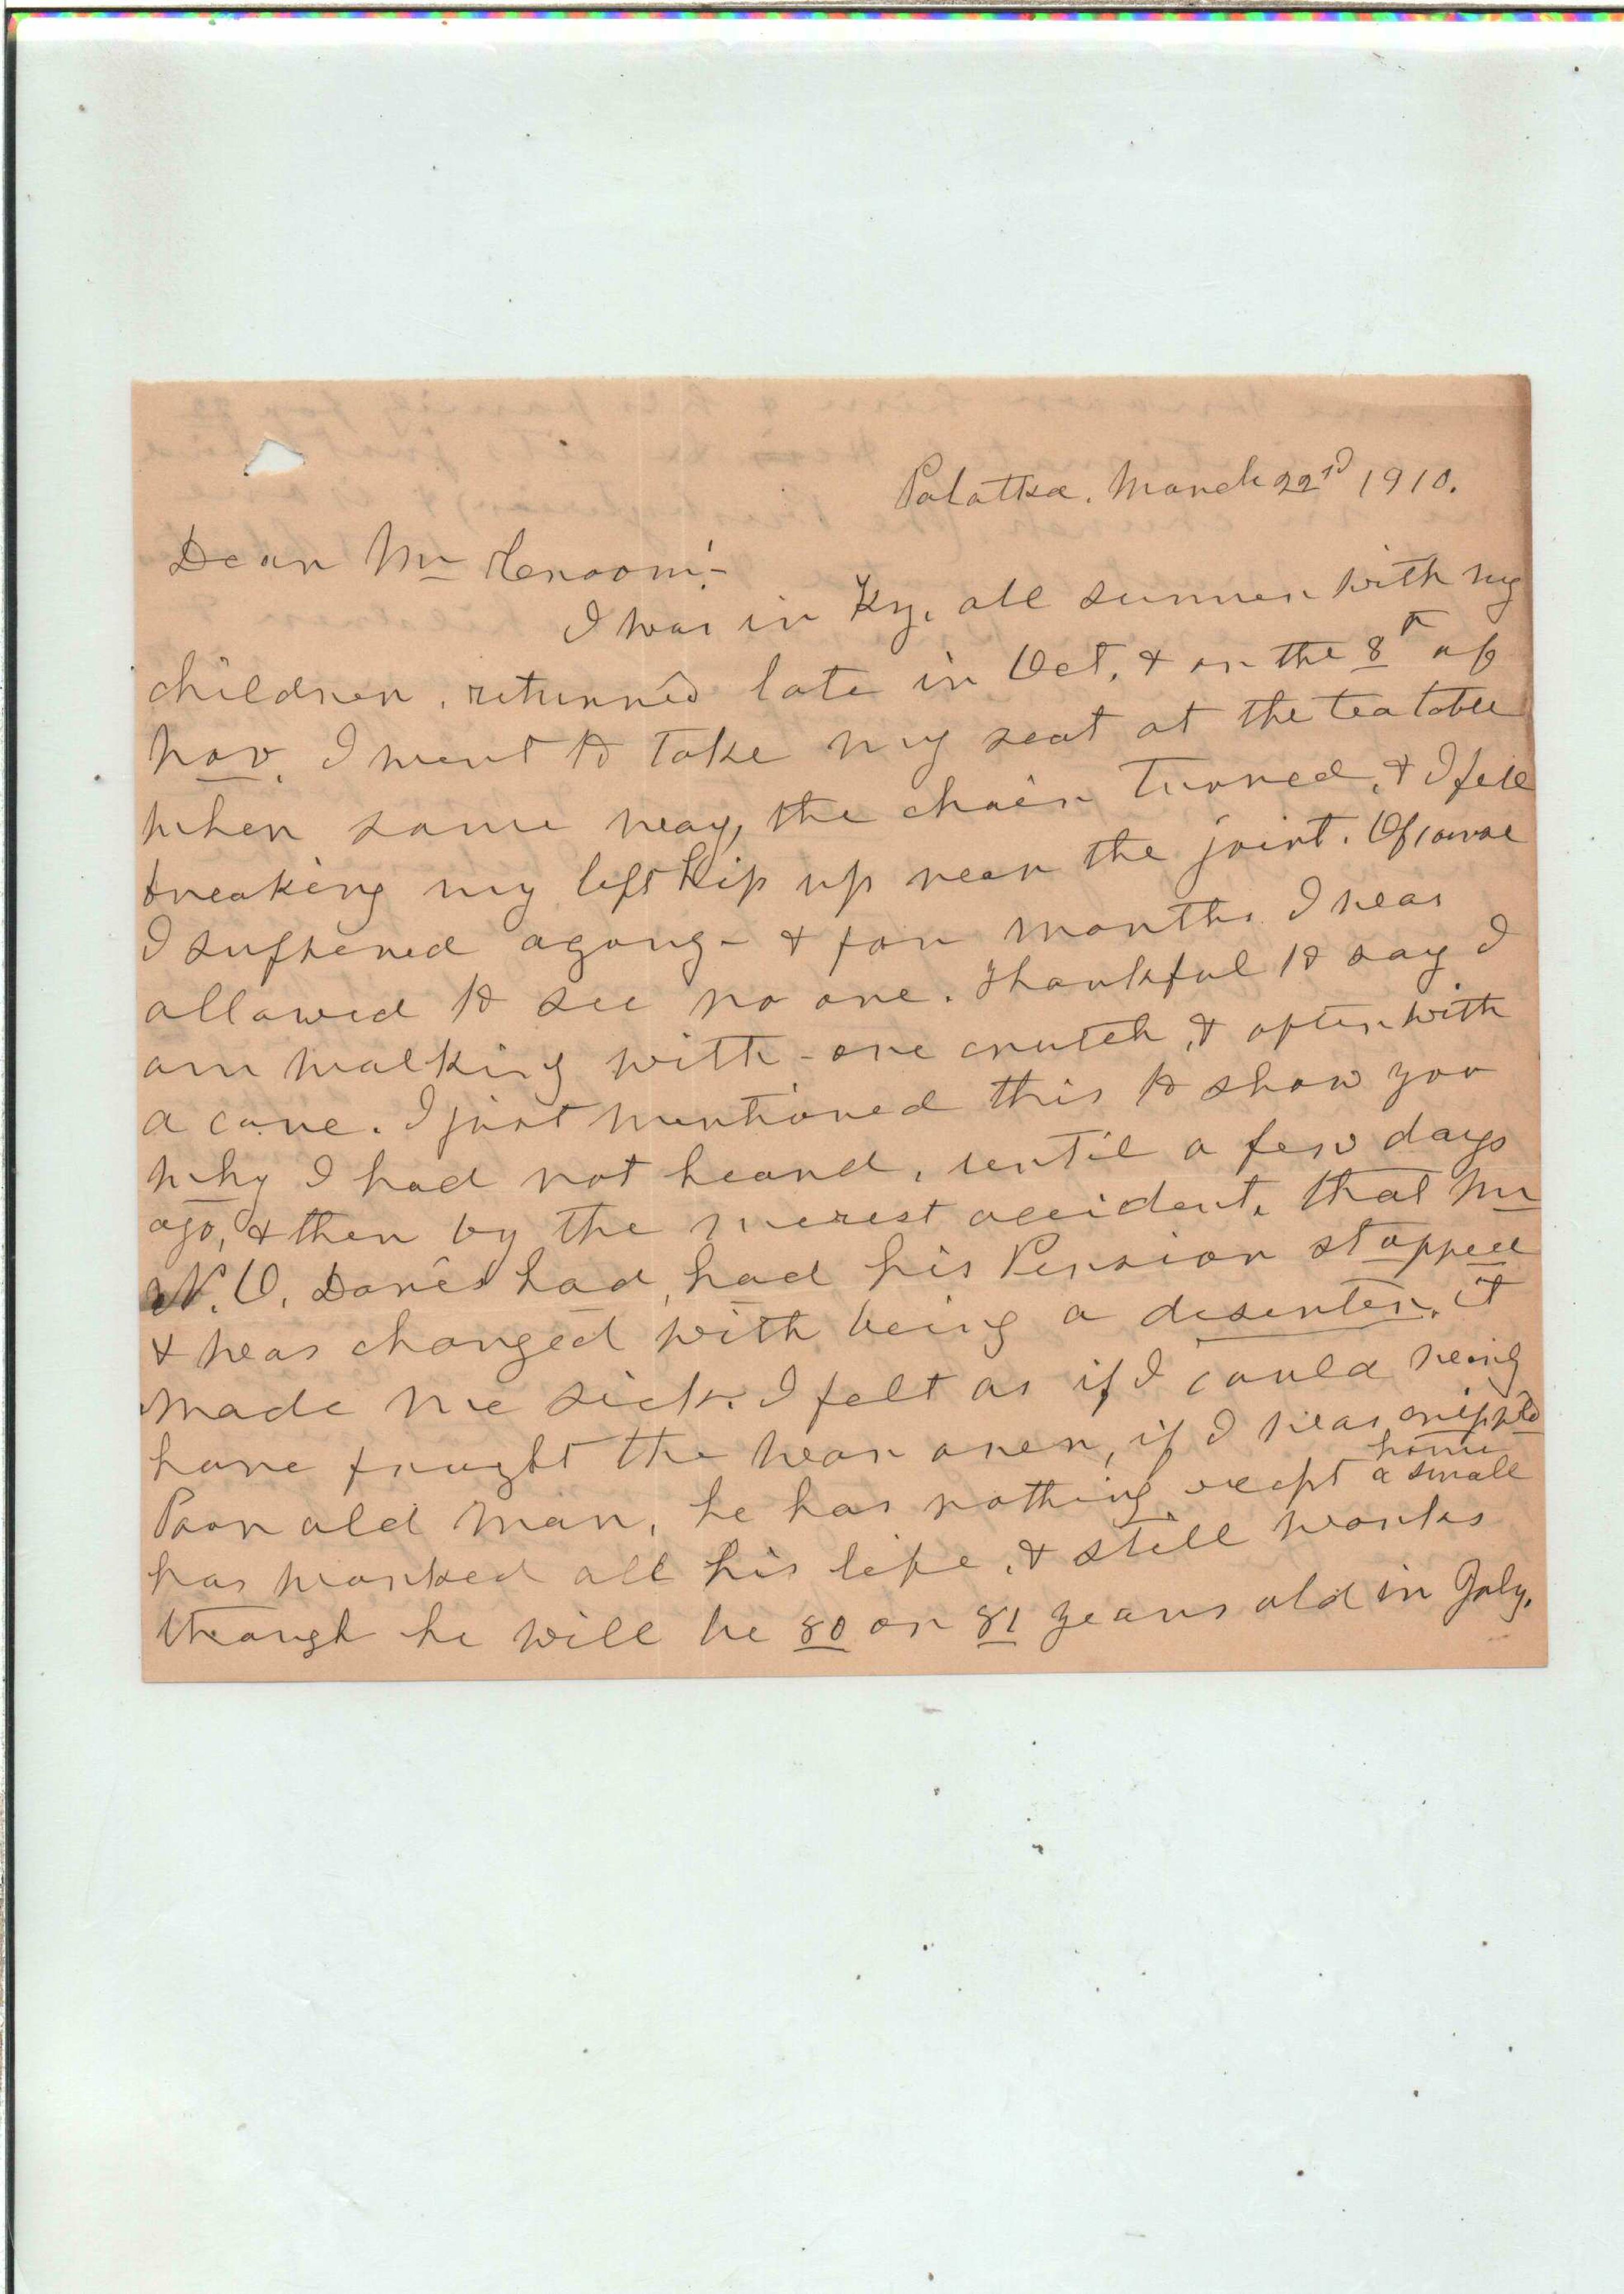 Palatka, March 22nd 1910.
Dear Mr Croom:-
I was in Ky, all summer with my
children, returned late in Oct, & on the 8th of
Nov, I went to take my seat at the tea table
when some way, the chair turned, & I fell
breaking my left hip up near the joint. Of course
I suffered agony - & for months I was
allowed to see no one. Thankful to say I
am walking with - one crutch, & often with
a cane. I just mentioned this to show you
why I had not heard, until a few days
ago, & then by the merest accident, that Mr
W. O. Davis had, had his Pension stopped
& was charged with being a deserter, it
made me sick. I felt as if I could
have fought the war over, if I was crippled
Poor old man, he has nothing except a small home
has worked all his life, & still works
though he will be 80 or 81 years old in July.